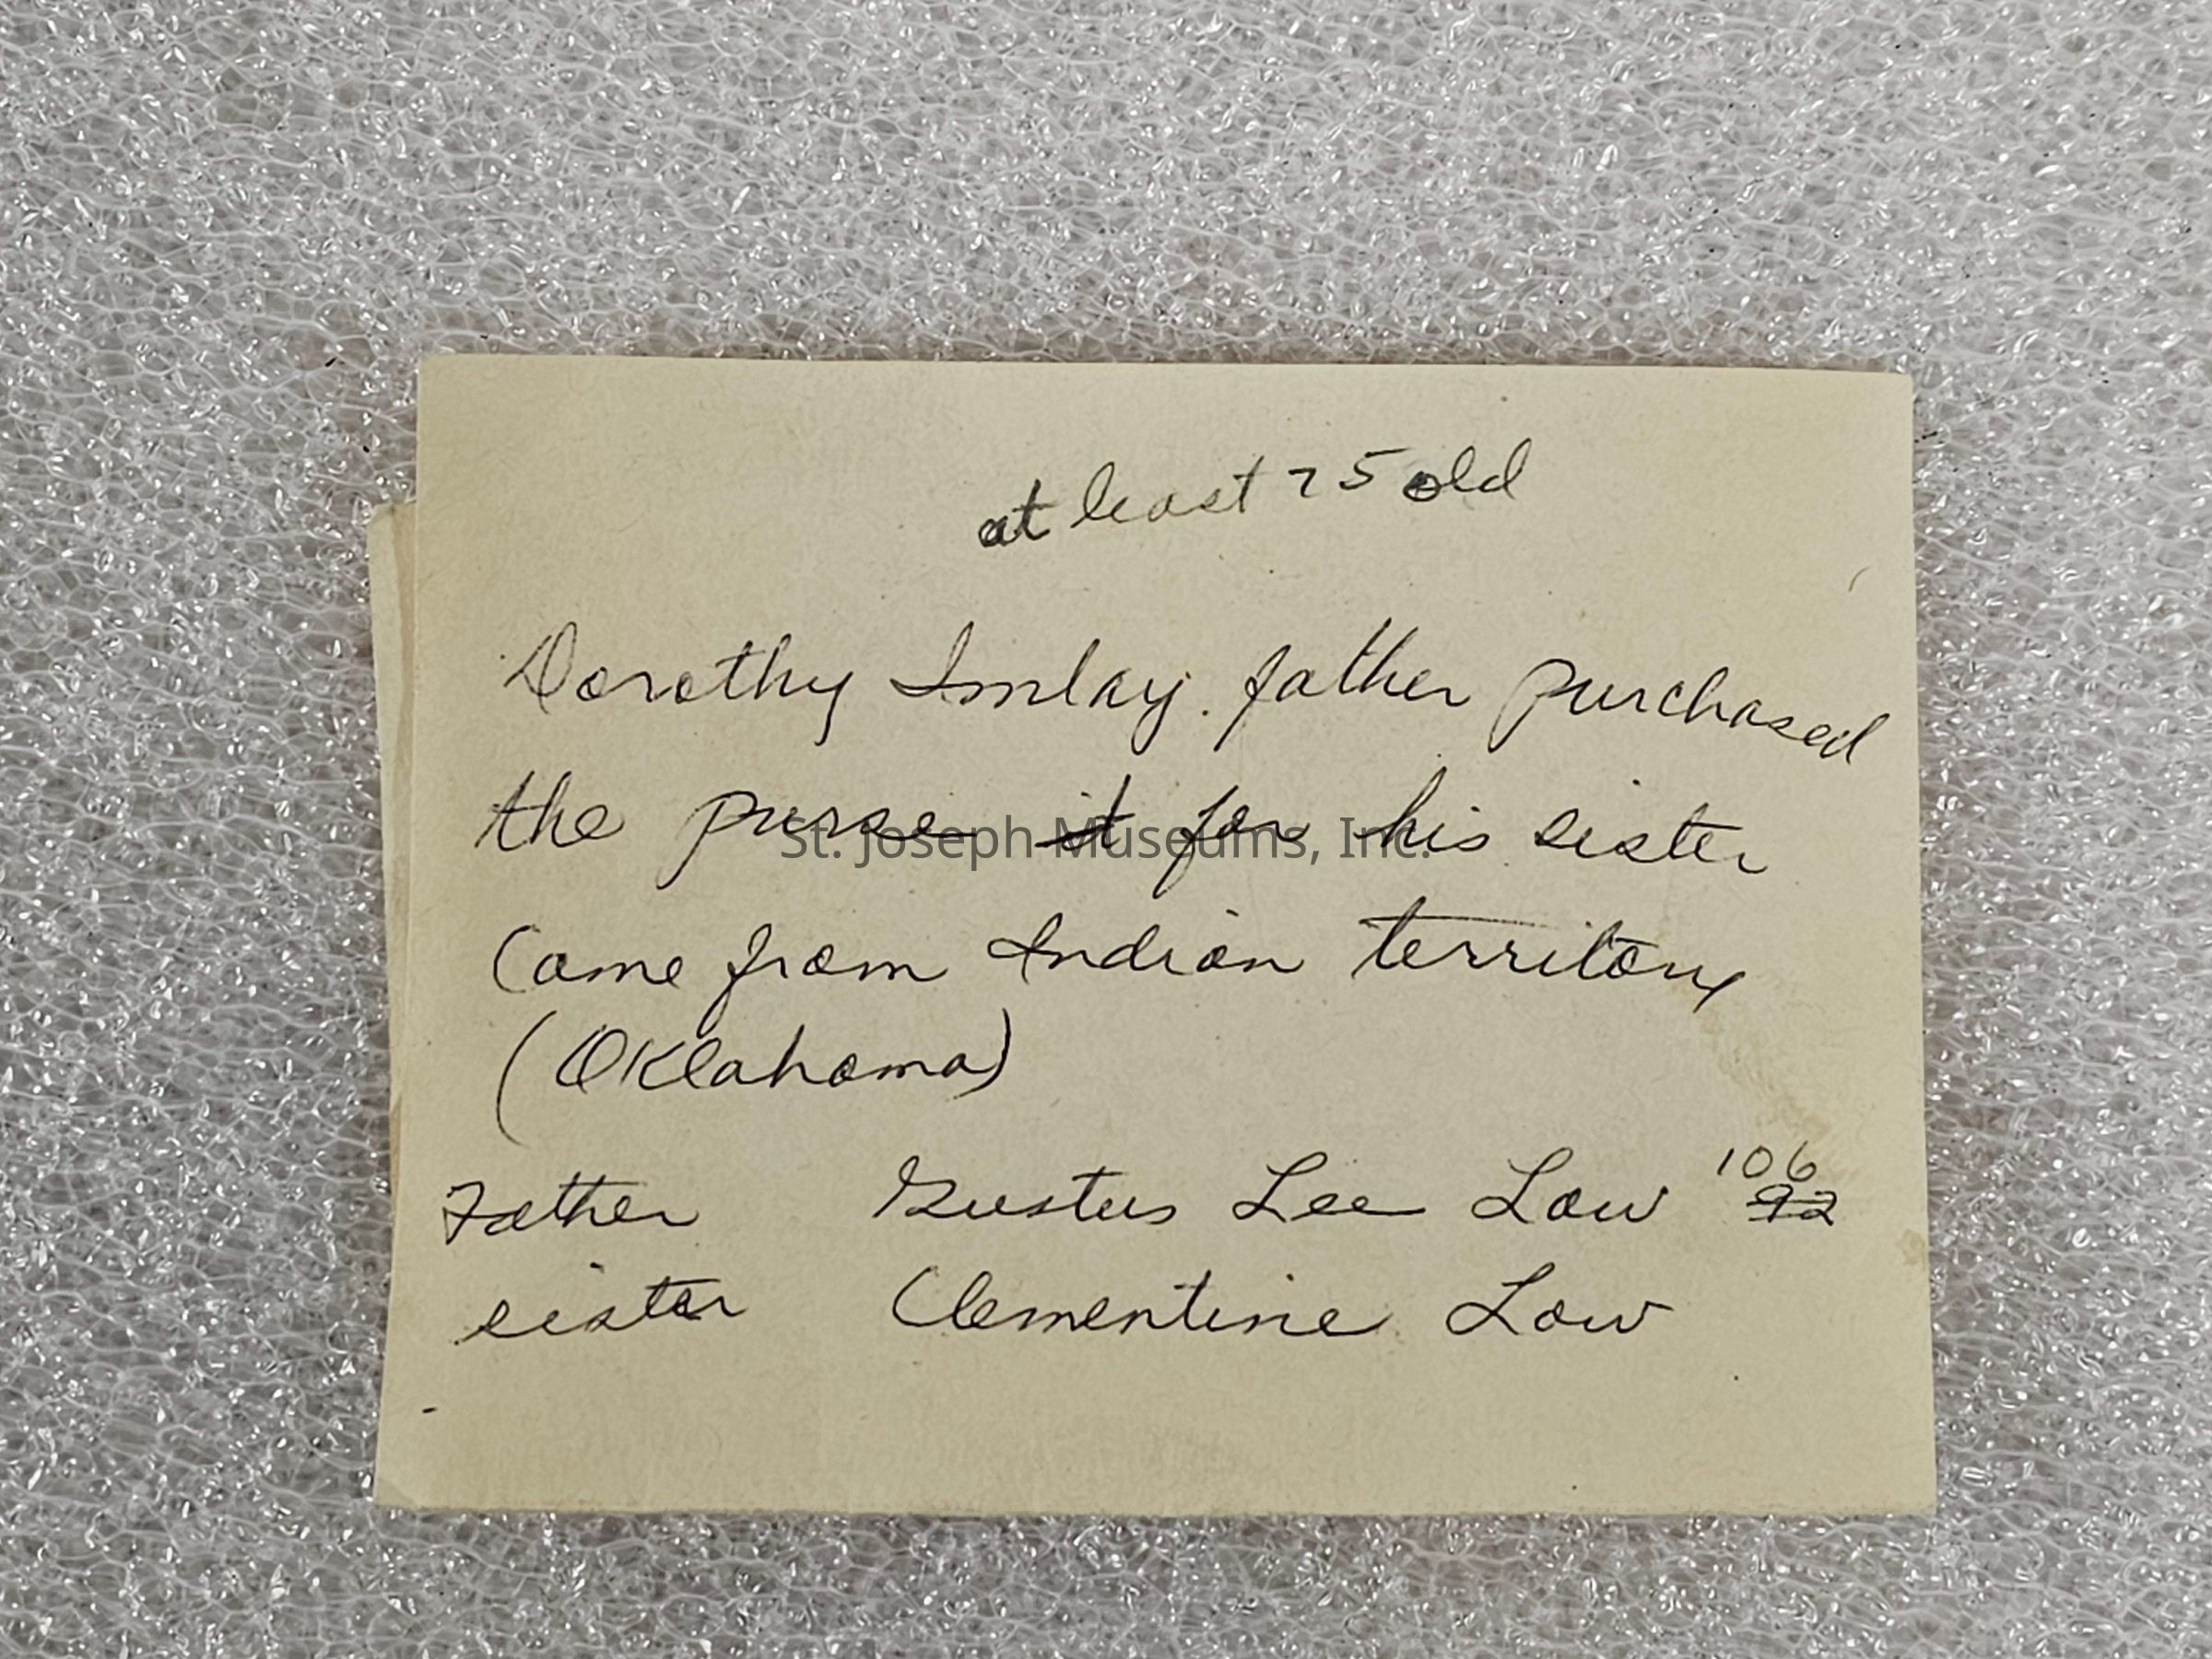 at least 75 old
Dorothy Imlay. father purchased
the purse it for his sister
Came from Indian territory
(Oklahoma)
Father Gustus Lee Low 106 92
sister Clementine Low
St. Joseph Museums, Inc.